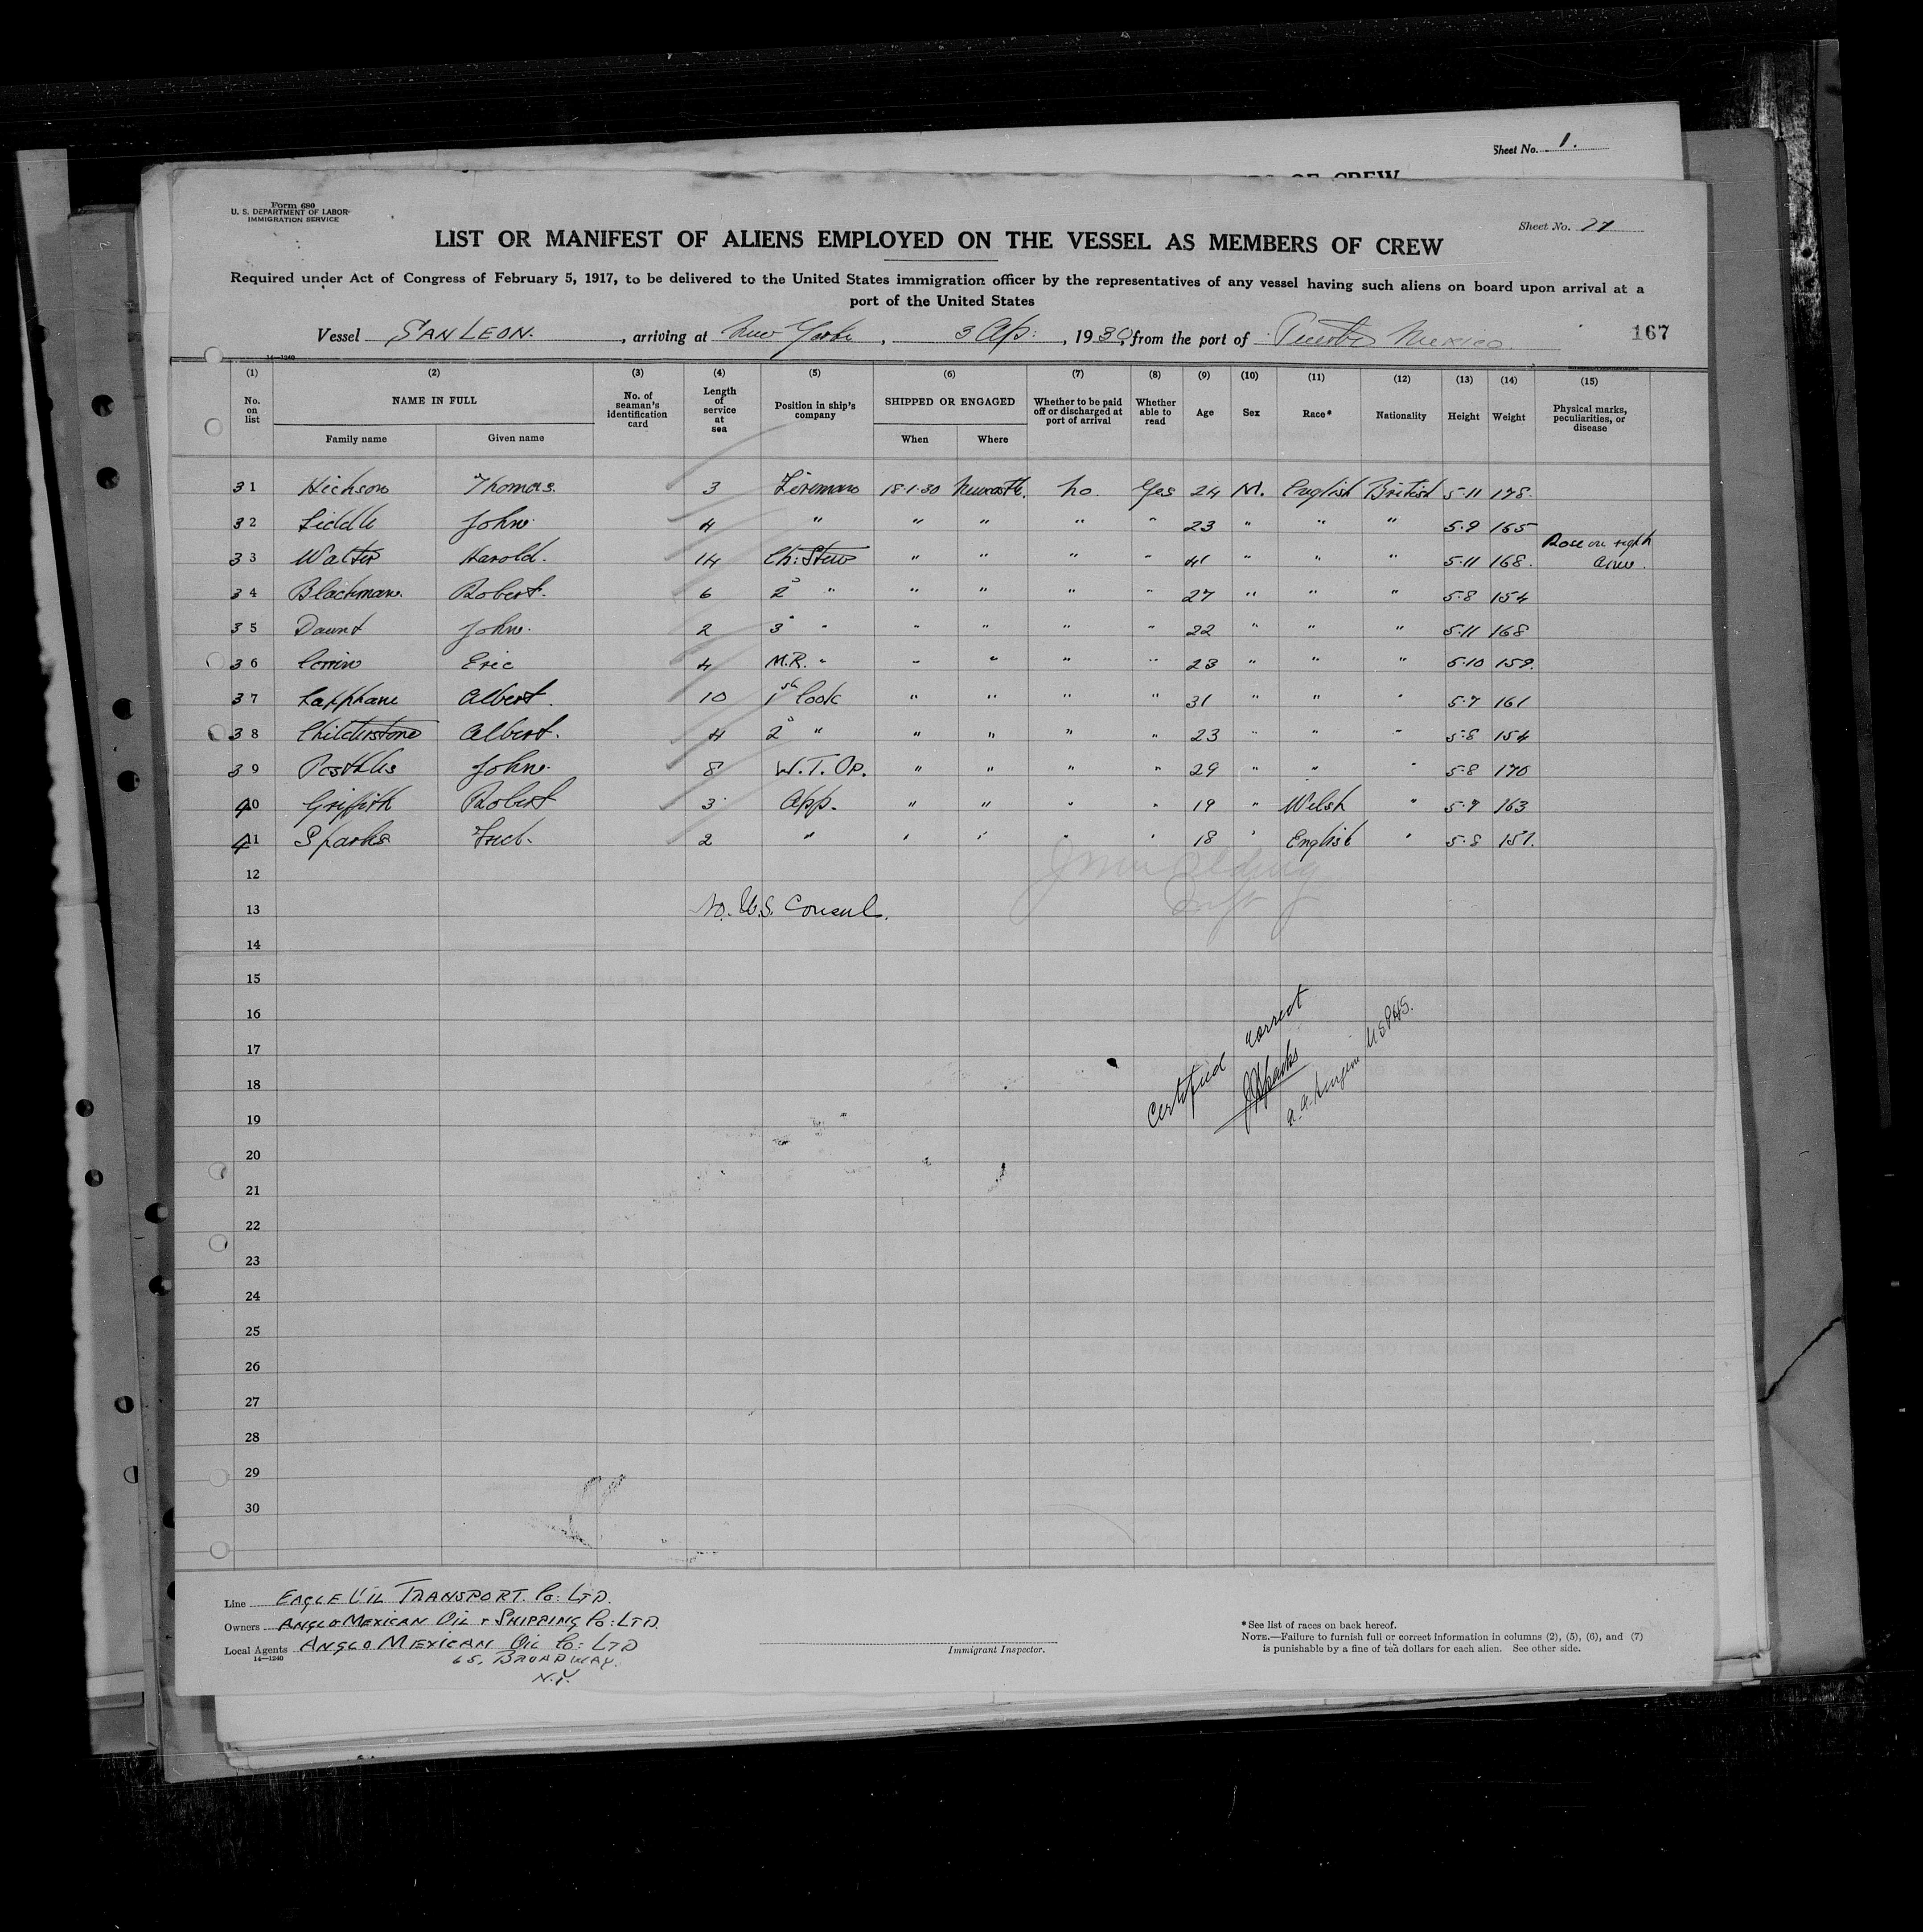 Sheet No. 1.
Form 680
U. S. DEPARTMENT OF LABOR
IMMIGRATION SERVICE
Sheet No.
LIST OR MANIFEST OF ALIENS EMPLOYED ON THE VESSEL AS MEMBERS OF CREW
Required under Act of Congress of February 5, 1917, to be delivered to the United States immigration officer by the representatives of any vessel having such aliens on board upon arrival at a
port of the United States
Vessel SAN LEON. , arriving at New York , 3 Ap: , 1930, from the port of Puerto Mexico. 167
14—1240
(1) (2) (3) (4) (5) (6) (7) (8) (9) (10) (11) (12) (13) (14) (15)
No. on list NAME IN FULL No. of seaman's identification card Length of service at sea Position in ship's company SHIPPED OR ENGAGED Whether to be paid off or discharged at port of arrival Whether able to read Age Sex Race* Nationality Height Weight Physical marks, peculiarities, or disease
Family name Given name When Where
31 Hickson Thomas. 3 Fireman 18.1.30 Newcastle. No. Yes 24 M. English British 5.11 178.
32 Liddle John. 4 " " " " " 23 " " " 5.9 165
33 Walter Harold. 14 Ch: Stew " " " " 41 " " " 5.11 168. Rose on right arm.
34 Blackman. Robert. 6 2" " " " " " 27 " " " 5.8 154
35 Daunt John. 2 3" " " " " " 22 " " " 5.11 168
36 Eric 4 M.R. " " " " " 23 " " " 5.10 159.
37 Albert. 10 1st Cook " " " " 31 " " " 5.7 161
38 Childerstone Albert. 4 2" " " " " " 23 " " " 5.8 154
39 John. 8 W.T. Op. " " " " 29 " " " 5.8 170
40 Griffith Robert 3 App. " " " " 19 " Welsh " 5.7 163
41 Sparks Fred. 2 " " " " " 18 " English " 5.8 151.
12
13 No. U.S. Consul.
14
15
16
17
18
19
20
21
22
23
24
25
26
27
28
29
30
Certified correct
A. A. Surgeon U.S.P.H.S.
Line EAGLE OIL TRANSPORT. Co: LTD.
Owners ANGLO MEXICAN OIL & SHIPPING Co: LTD.
Local Agents ANGLO MEXICAN OIL Co: LTD
14—1240
65, BROADWAY.
N.Y.
Immigrant Inspector.
*See list of races on back hereof.
NOTE.—Failure to furnish full or correct information in columns (2), (5), (6), and (7)
is punishable by a fine of ten dollars for each alien. See other side.